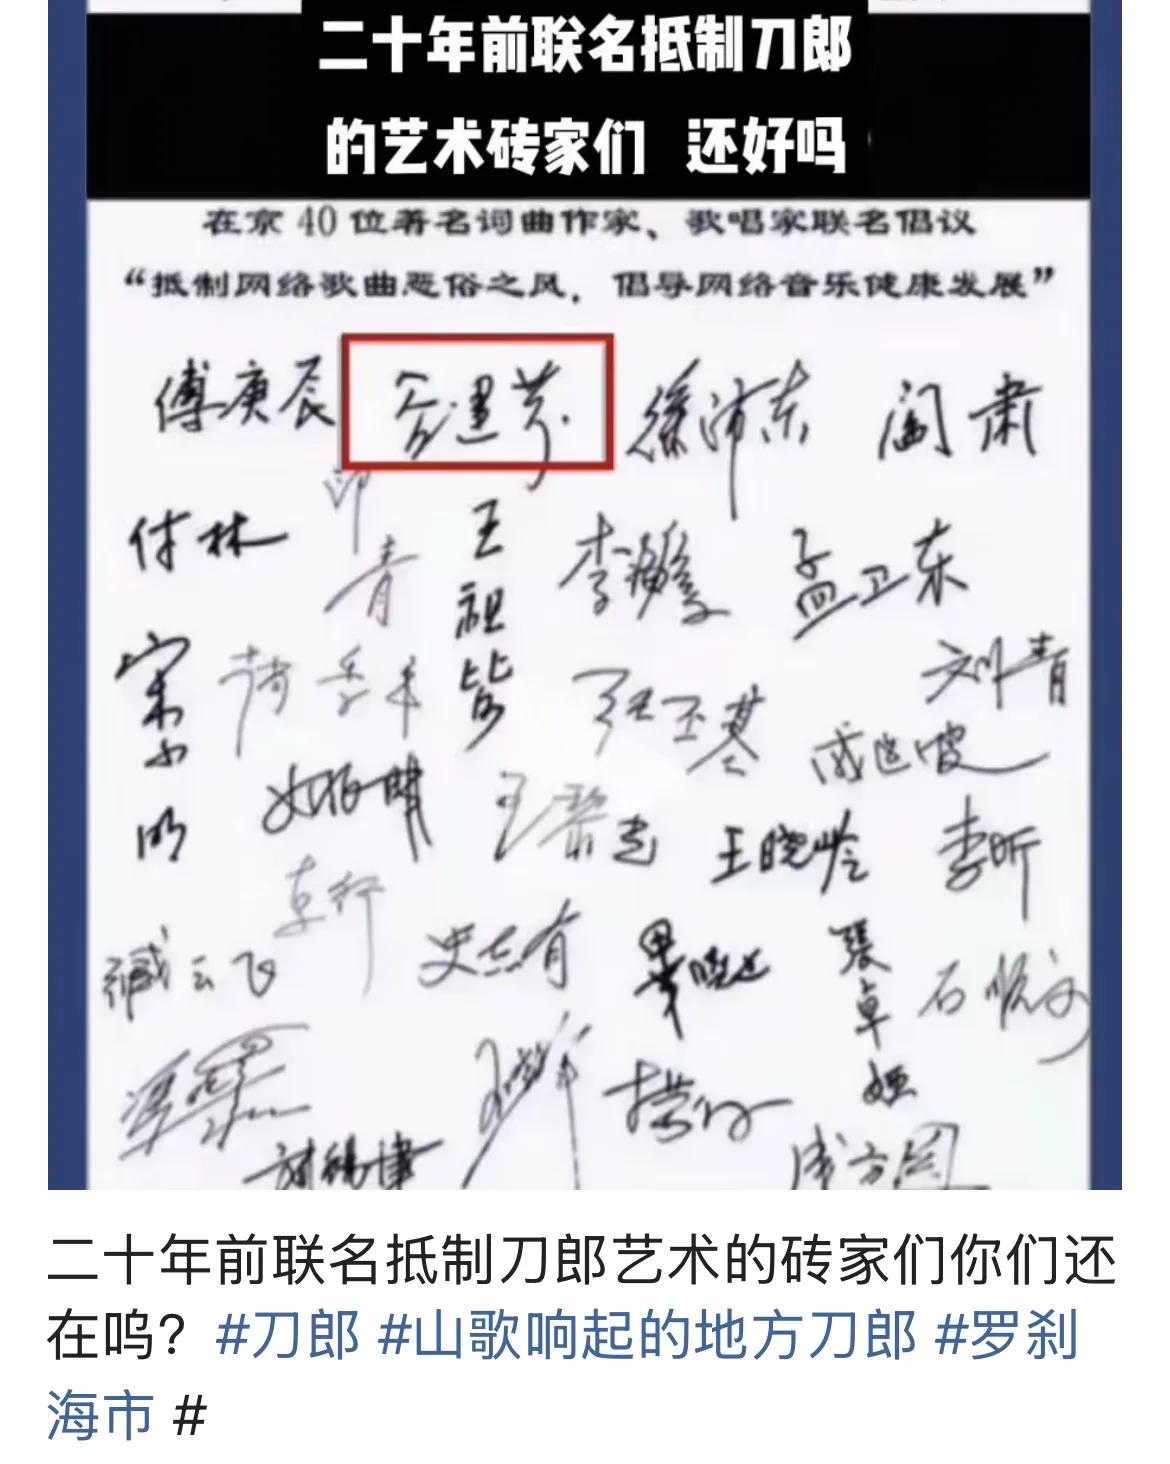 二十年前联名抵制刀郎
的艺术砖家们 还好吗
在京40位著名词曲作家、歌唱家联名倡议
“抵制网络歌曲恶俗之风，倡导网络音乐健康发展”
傅庚辰 谷建芬 徐沛东 阎肃
付林 印青 王祖皆 李海鹰 孟卫东
宋小明 刘青
王晓岭 李昕
臧云飞 卞留念 史志有 张卓娅 石顺义
成方圆
二十年前联名抵制刀郎艺术的砖家们你们还
在呜？#刀郎 #山歌响起的地方刀郎 #罗刹
海市 #